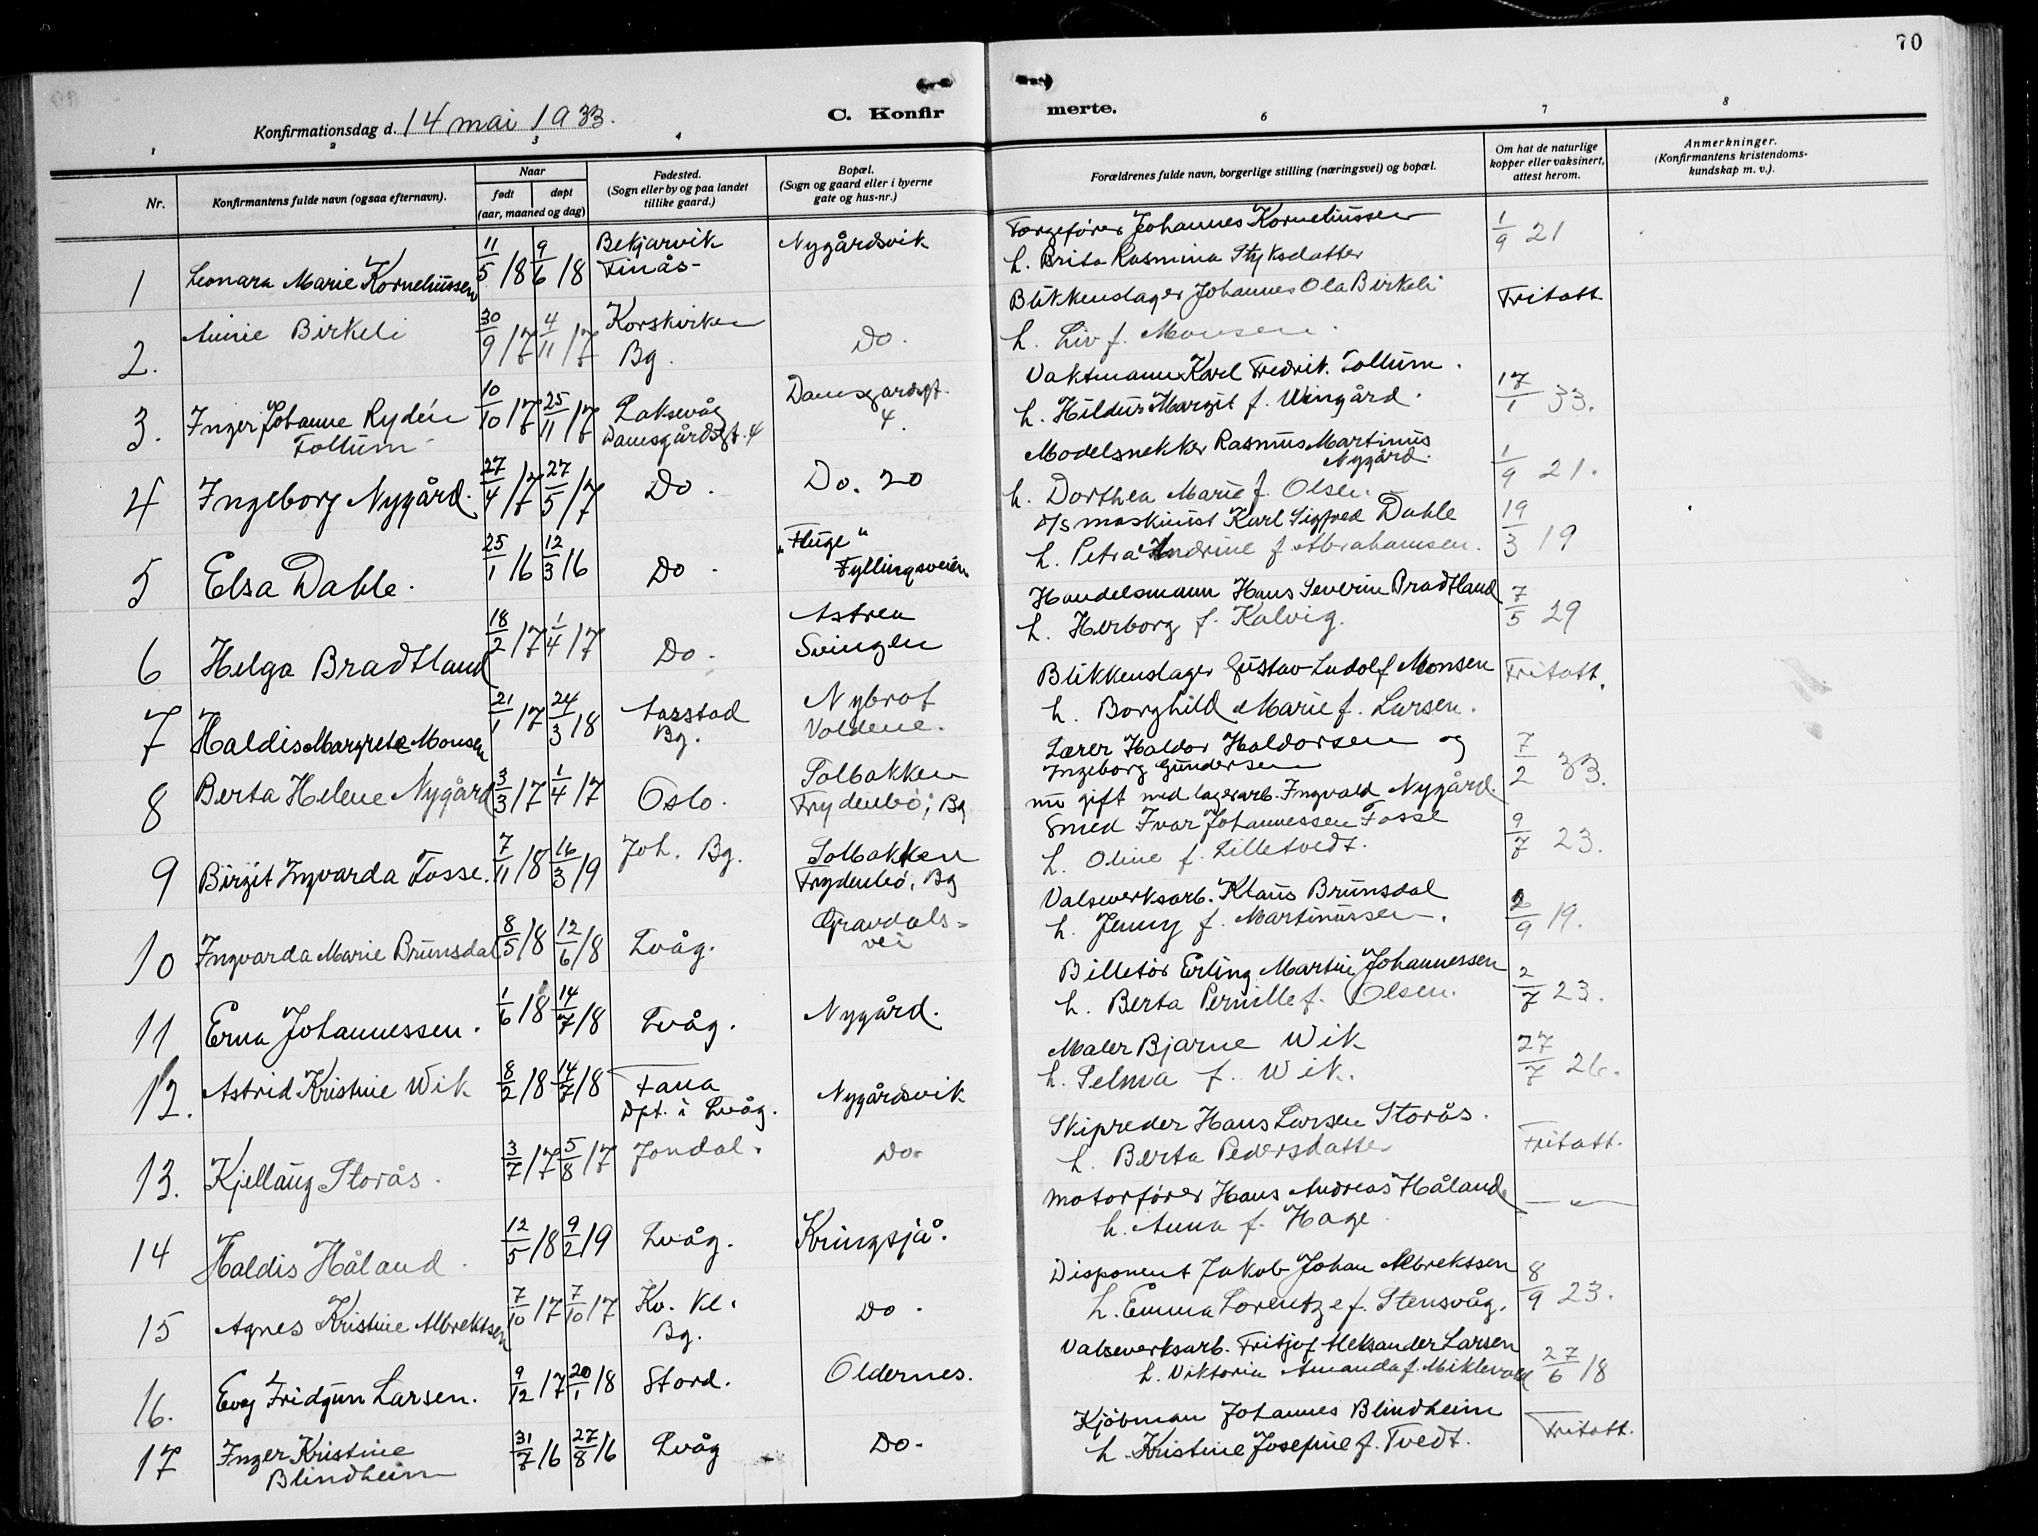 70
Konfirmationsdag d. 14 mai 1933.
C. Konfir
merte.
1 2 3 4 6 7 8
Nr.
Konfirmantens fulde navn (ogsaa efternavn).
Naar
født døpt
(aar, maaned og dag)
Fødested.
(Sogn eller by og paa landet
tillike gaard.)
Bopæl.
(Sogn og gaard eller i byerne
gate og hus-nr.)
Forældrenes fulde navn, borgerlige stilling (næringsvei) og bopæl.
Om hat de naturlige
kopper eller vaksinert,
attest herom.
Anmerkninger.
(Konfirmantens kristendoms-
kundskap m. v.).
1 Leonara Marie Korneliussen 11/5 /8 9/6 /8 Bekjarvik
Finås- Nygårdsvik
Færgefører Johannes Korneliussen
h. Brita Rasmina Styksdatter 1/9 21
2. Annie Birkeli 30/9 /7 4/11 /7 Korskirken
Bg. Do.
Blikkenslager Johannes Ola Birkeli
h. Liv f. Monsen. Fritatt
3. Inger Johanne Rydén
Tollum- 10/10 /7 25/11 /7 Laksevåg
Damsgårdsgt. 4 Damsgårdsgt.
4.
Vaktmann Karl Fredrik Tollum.
h. Hildur Margit f. Wingård. 17/1 33.
4 Ingeborg Nygård. 27/4 /7 27/5 /7 Do. Do. 20
Modelsnekker Rasmus Martinus
Nygård.
h. Dorthea Marie f. Olsen. 1/9 21.
5 Elsa Dahle. 25/1 /6 12/3 /6 Do. "Fluge"
Fyllingsveien
D/S maskinist Karl Sigfred Dahle
h. Petra Andrine f Abrahamsen. 19/3 19
6 Helga Bradtland 18/2 /7 1/4 /7 Do. Astrea
Svingen
Handelsmann Hans Severin Bradtland
h. Herborg f. Kalvig. 7/5 29
7 Haldis Margrete Monsen 21/1 /7 24/3 /8 Aarstad
Bg. Nybrot
Voldene.
Blikkenslager Gustav Ludolf Monsen
h. Borghild Marie f. Larsen. Fritatt.
8 Berta Helene Nygård 3/3 /7 1/4 /7 Oslo. Solbakken
Frydenbø, Bg
Lærer Haldor Haldorsen og
Ingeborg Gundersen
nu gift med lagerarb. Ingvald Nygård. 7/2 33.
9 Birgit Ingvarda Fosse. 7/11 /8 16/3 /9 Joh. Bg. Solbakken
Frydenbø, Bg
Smed Ivar Johannessen Fosse
h. Oline f. Lilletvedt. 9/7 23.
10 Ingvarda Marie Brunsdal 8/5 /8 12/6 /8 Lvåg. Gravdals-
vei
Valseverksarb. Klaus Brunsdal
h. Jenny f. Martinussen. 2/9 19.
11 Erna Johannessen. 1/6 /8 14/7 /8 Lvåg. Nygård.
Billetør Erling Martin Johannessen
h. Berta Pernille f. Olsen. 2/7 23.
12. Astrid Kristine Wik 8/2 /8 14/7 /8 Fana
Dpt. i Lvåg. Nygårdsvik
Maler Bjarne Wik
h. Selma f. Wik. 27/7 26.
13. Kjellaug Storås. 3/7 /7 5/8 /7 Jondal. Do.
Skipreder Hans Larsen Storås.
h. Berta Pedersdatter Fritatt.
14 Haldis Håland. 12/5 /8 9/2 /9 Lvåg. Kringsjå.
Motorfører Hans Andreas Håland
h. Anna f. Hage — „ —
15 Agnes Kristine Albrektsen 7/10 /7 7/10 /7 Kv. Kl.
Bg. Do.
Disponent Jakob Johan Albrektsen
h. Emma Lorentze f. Stensvåg. 8/9 23.
16. Evy Fridgun Larsen. 9/12 /7 20/1 /8 Stord. Oldernes.
Valseverksarb. Fritjof Aleksander Larsen
h. Viktoria Amanda f. Miklevold 27/6 18
17 Inger Kristine
Blindheim 31/7 /6 27/8 /6 Lvåg Do.
Kjøbman Johannes Blindheim
h. Kristine Josefine f. Tvedt. Fritatt.